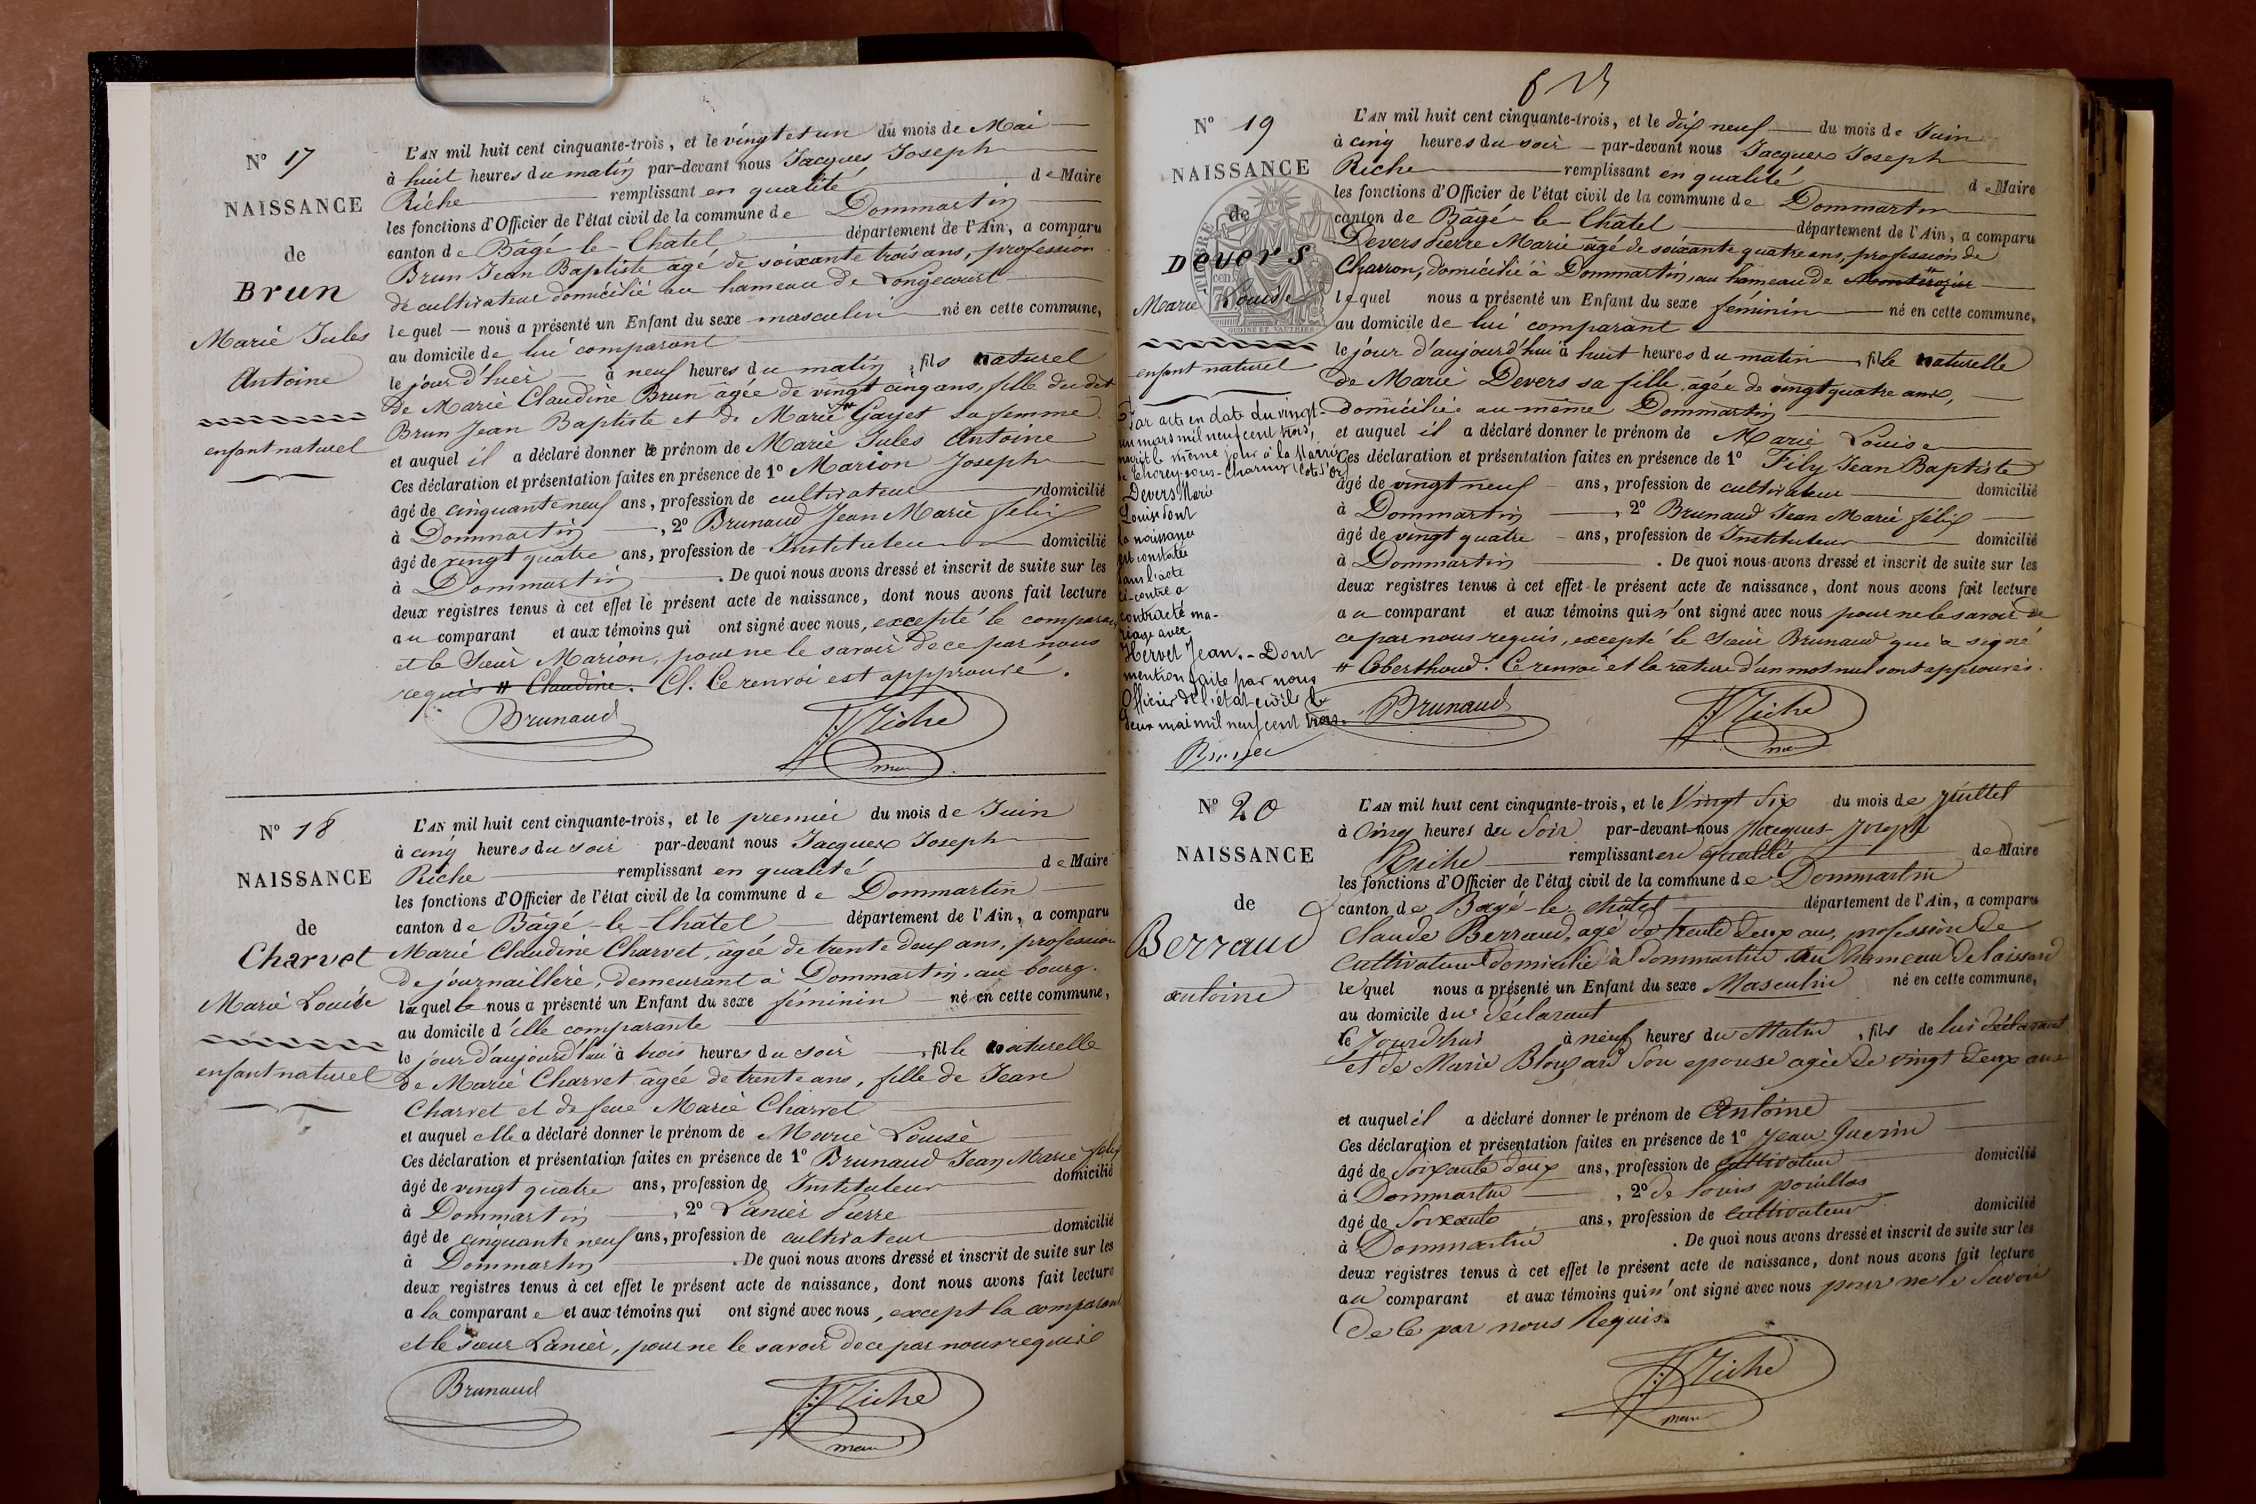 N° 17
NAISSANCE
de
Brun
Marie Jules
Antoine
enfant naturel
L'AN mil huit cent cinquante-trois, et le vingt et un du mois de Mai
à huit heures du matin par-devant nous Jacques Joseph
Riche remplissant en qualité de Maire
les fonctions d'Officier de l'état civil de la commune de Dommartin
canton de Bâgé-le-Chatel département de l'Ain, a comparu
Brun Jean Baptiste âgé de soixante trois ans, profession
de cultivateur domicilié au hameau de Longecourt
lequel nous a présenté un Enfant du sexe masculin né en cette commune,
au domicile de lui comparant
le jour d'hier à neuf heures du matin, fils naturel
de Marie Claudine Brun âgée de vingt cinq ans, fille du dit
Brun Jean Baptiste et de Marie # Gayet sa femme
et auquel il a déclaré donner le prénom de Marie Jules Antoine
Ces déclaration et présentation faites en présence de 1° Marion Joseph
âgé de cinquante neuf ans, profession de cultivateur domicilié
à Dommartin, 2° Brunaud Jean Marie félix
âgé de vingt quatre ans, profession de Instituteur domicilié
à Dommartin. De quoi nous avons dressé et inscrit de suite sur les
deux registres tenus à cet effet le présent acte de naissance, dont nous avons fait lecture
au comparant et aux témoins qui ont signé avec nous, excepté le comparant
et le Sieur Marion, pour ne le savoir de ce par nous
requis # Claudine. Cl. Ce renvoi est appprouvé.
Brunaud JJ Riche
maire
N° 18
NAISSANCE
de
Charvet
Marie Louise
enfant naturel
L'AN mil huit cent cinquante-trois, et le premier du mois de Juin
à cinq heures du soir par-devant nous Jacques Joseph
Riche remplissant en qualité de Maire
les fonctions d'Officier de l'état civil de la commune de Dommartin
canton de Bâgé-le-Chatel département de l'Ain, a comparu
Marie Claudine Charvet, âgée de trente deux ans, profession
de journaillère, demeurant à Dommartin, au bourg.
laquelle nous a présenté un Enfant du sexe féminin né en cette commune,
au domicile d'elle comparante
le jour d'aujourd'hui à trois heures du soir, fille naturelle
de Marie Charvet âgée de trente ans, fille de Jean
Charvet et de feue Marie Charvet
et auquel elle a déclaré donner le prénom de Marie Louise
Ces déclaration et présentation faites en présence de 1° Brunaud Jean Marie félix
âgé de vingt quatre ans, profession de Instituteur domicilié
à Dommartin, 2° Lanier Pierre
âgé de cinquante neuf ans, profession de cultivateur domicilié
à Dommartin. De quoi nous avons dressé et inscrit de suite sur les
deux registres tenus à cet effet le présent acte de naissance, dont nous avons fait lecture
a la comparante et aux témoins qui ont signé avec nous, except la comparant
et le sieur Lanier, pour ne le savoir de ce par nous requis
Brunaud JJ Riche
maire
N° 19
NAISSANCE
de
Devers
Marie Louise
enfant naturel
Par acte en date du vingt-
un mars mil neuf cent trois,
inscrit le même jour à la Mairie
de Thorey-sous-Charny Côte d'or
Devers Marie
Louise dont
la naissance
est constatée
dans l'acte
ci-contre a
contracté ma-
riage avec
Hervet Jean. - Dont
mention faite par nous
Officier de l'état-civil le
deux mai mil neuf cent trois.
L'AN mil huit cent cinquante-trois, et le dix neuf du mois de Juin
à cinq heures du soir par-devant nous Jacques Joseph
Riche remplissant en qualité de Maire
les fonctions d'Officier de l'état civil de la commune de Dommartin
canton de Bâgé-le-Chatel département de l'Ain, a comparu
Devers Pierre Marie âgé de soixante quatre ans, profession de
Charron, domicilié à Dommartin, au hameau de #
lequel nous a présenté un Enfant du sexe féminin né en cette commune,
au domicile de lui comparant
le jour d'aujourd'hui à huit heures du matin, fille naturelle
de Marie Devers sa fille âgée de vingt quatre ans,
domiciliée au même Dommartin
et auquel il a déclaré donner le prénom de Marie Louise
Ces déclaration et présentation faites en présence de 1° Fily Jean Baptiste
âgé de vingt neuf ans, profession de cultivateur domicilié
à Dommartin, 2° Brunaud Jean Marie félix
âgé de vingt quatre ans, profession de Instituteur domicilié
à Dommartin. De quoi nous avons dressé et inscrit de suite sur les
deux registres tenus à cet effet le présent acte de naissance, dont nous avons fait lecture
au comparant et aux témoins qui n'ont signé avec nous pour ne le savoir de
ce par nous requis, excepté le Sieur Brunaud qui a signé
# Oberthoud. Ce renvoi et la rature d'un mot nul sont approuvés.
Brunaud JJ Riche
maire
N° 20
NAISSANCE
de
Berraud
antoine
L'AN mil huit cent cinquante-trois, et le Vingt Six du mois de juillet
à Cinq heures du Soir par-devant nous Jacques Joseph
Riche remplissant en qualité de Maire
les fonctions d'Officier de l'état civil de la commune de Dommartin
canton de Bagé-le-châtel département de l'Ain, a comparu
Claude Berraud, agé de trente deux ans, profession de
Cultivateur domicilié à Dommartin au hameau de
lequel nous a présenté un Enfant du sexe Masculin né en cette commune,
au domicile du déclarant
le Jourd'hui à neuf heures du Matin, fils de lui déclarant
et de Marie Blouzard Son epouse agée de vingt deux ans
et auquel il a déclaré donner le prénom de Antoine
Ces déclaration et présentation faites en présence de 1° Jean Guerin
âgé de Soixante deux ans, profession de Cultivateur domicilié
à Dommartin, 2° de louis pouillas
âgé de Soixante ans, profession de Cultivateur domicilié
à Dommartin. De quoi nous avons dressé et inscrit de suite sur les
deux registres tenus à cet effet le présent acte de naissance, dont nous avons fait lecture
au comparant et aux témoins qui n'ont signé avec nous pour ne le Savoir
De Ce par nous Requis.
JJ Riche
maire